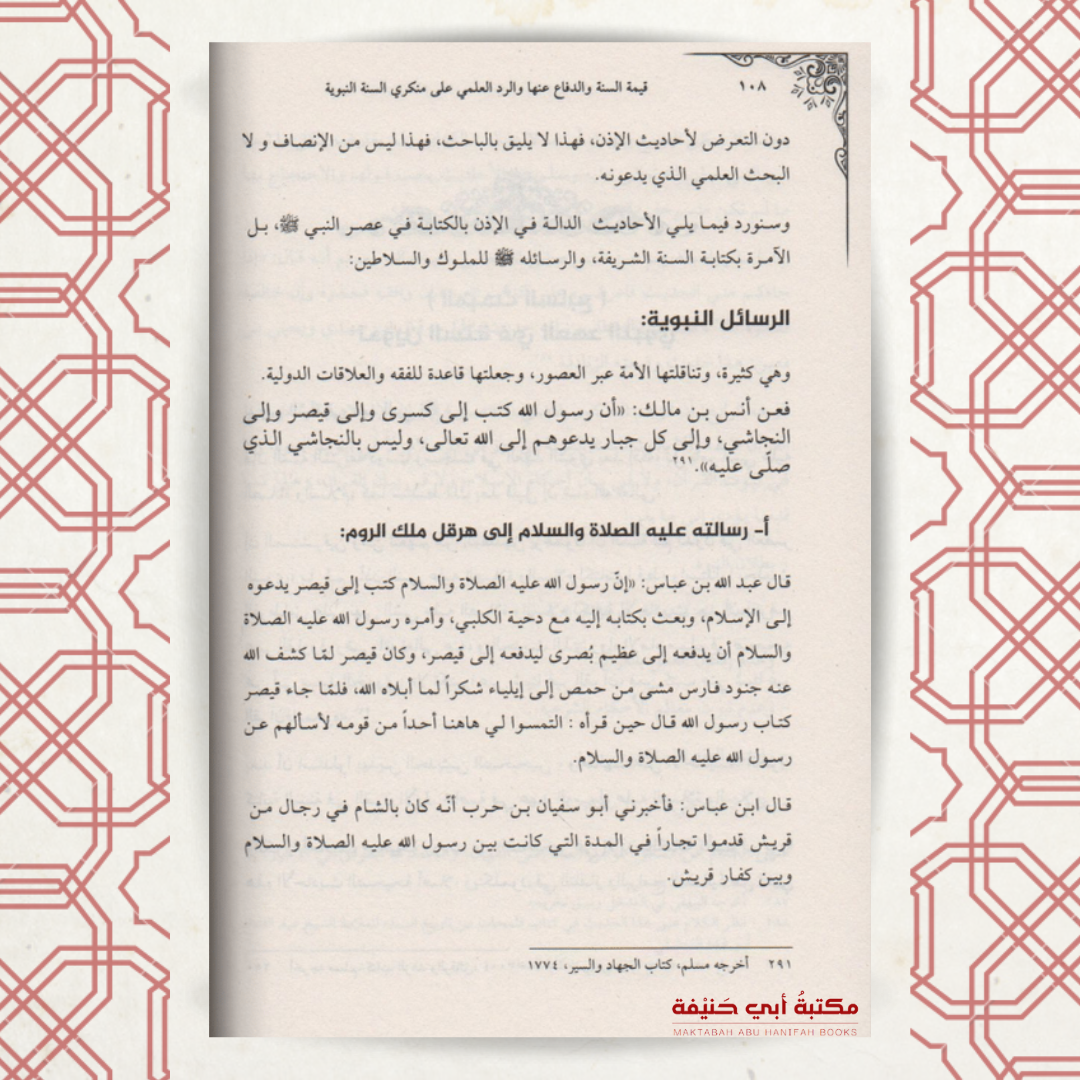 ١٠٨ قيمة السنة والدفاع عنها والرد العلمي على منكري السنة النبوية
دون التعرض لأحاديث الإذن، فهذا لا يليق بالباحث، فهذا ليس من الإنصاف و لا
البحث العلمي الذي يدعونه.
وسنورد فيما يلي الأحاديث الدالة في الإذن بالكتابة في عصر النبي ﷺ، بل
الآمرة بكتابة السنة الشريفة، والرسائله ﷺ للملوك والسلاطين:
الرسائل النبوية:
وهي كثيرة، وتناقلتها الأمة عبر العصور، وجعلتها قاعدة للفقه والعلاقات الدولية.
فعن أنس بن مالك: «أن رسول الله كتب إلى كسرى وإلى قيصر وإلى
النجاشي، وإلى كل جبار يدعوهم إلى الله تعالى، وليس بالنجاشي الذي
صلّى عليه».٢٩١
أ- رسالته عليه الصلاة والسلام إلى هرقل ملك الروم:
قال عبد الله بن عباس: «إنّ رسول الله عليه الصلاة والسلام كتب إلى قيصر يدعوه
إلى الإسلام، وبعث بكتابه إليه مع دحية الكلبي، وأمره رسول الله عليه الصلاة
والسلام أن يدفعه إلى عظيم بُصرى ليدفعه إلى قيصر، وكان قيصر لمّا كشف الله
عنه جنود فارس مشى من حمص إلى إيلياء شكراً لما أبلاه الله، فلمّا جاء قيصر
كتاب رسول الله قال حين قرأه : التمسوا لي هاهنا أحداً من قومه لأسألهم عن
رسول الله عليه الصلاة والسلام.
قال ابن عباس: فأخبرني أبو سفيان بن حرب أنّه كان بالشام في رجال من
قريش قدموا تجاراً في المدة التي كانت بين رسول الله عليه الصلاة والسلام
وبين كفار قريش.
٢٩١ أخرجه مسلم، كتاب الجهاد والسير، ١٧٧٤
مكتبةُ أبي حَنيْفة
MAKTABAH ABU HANIFAH BOOKS